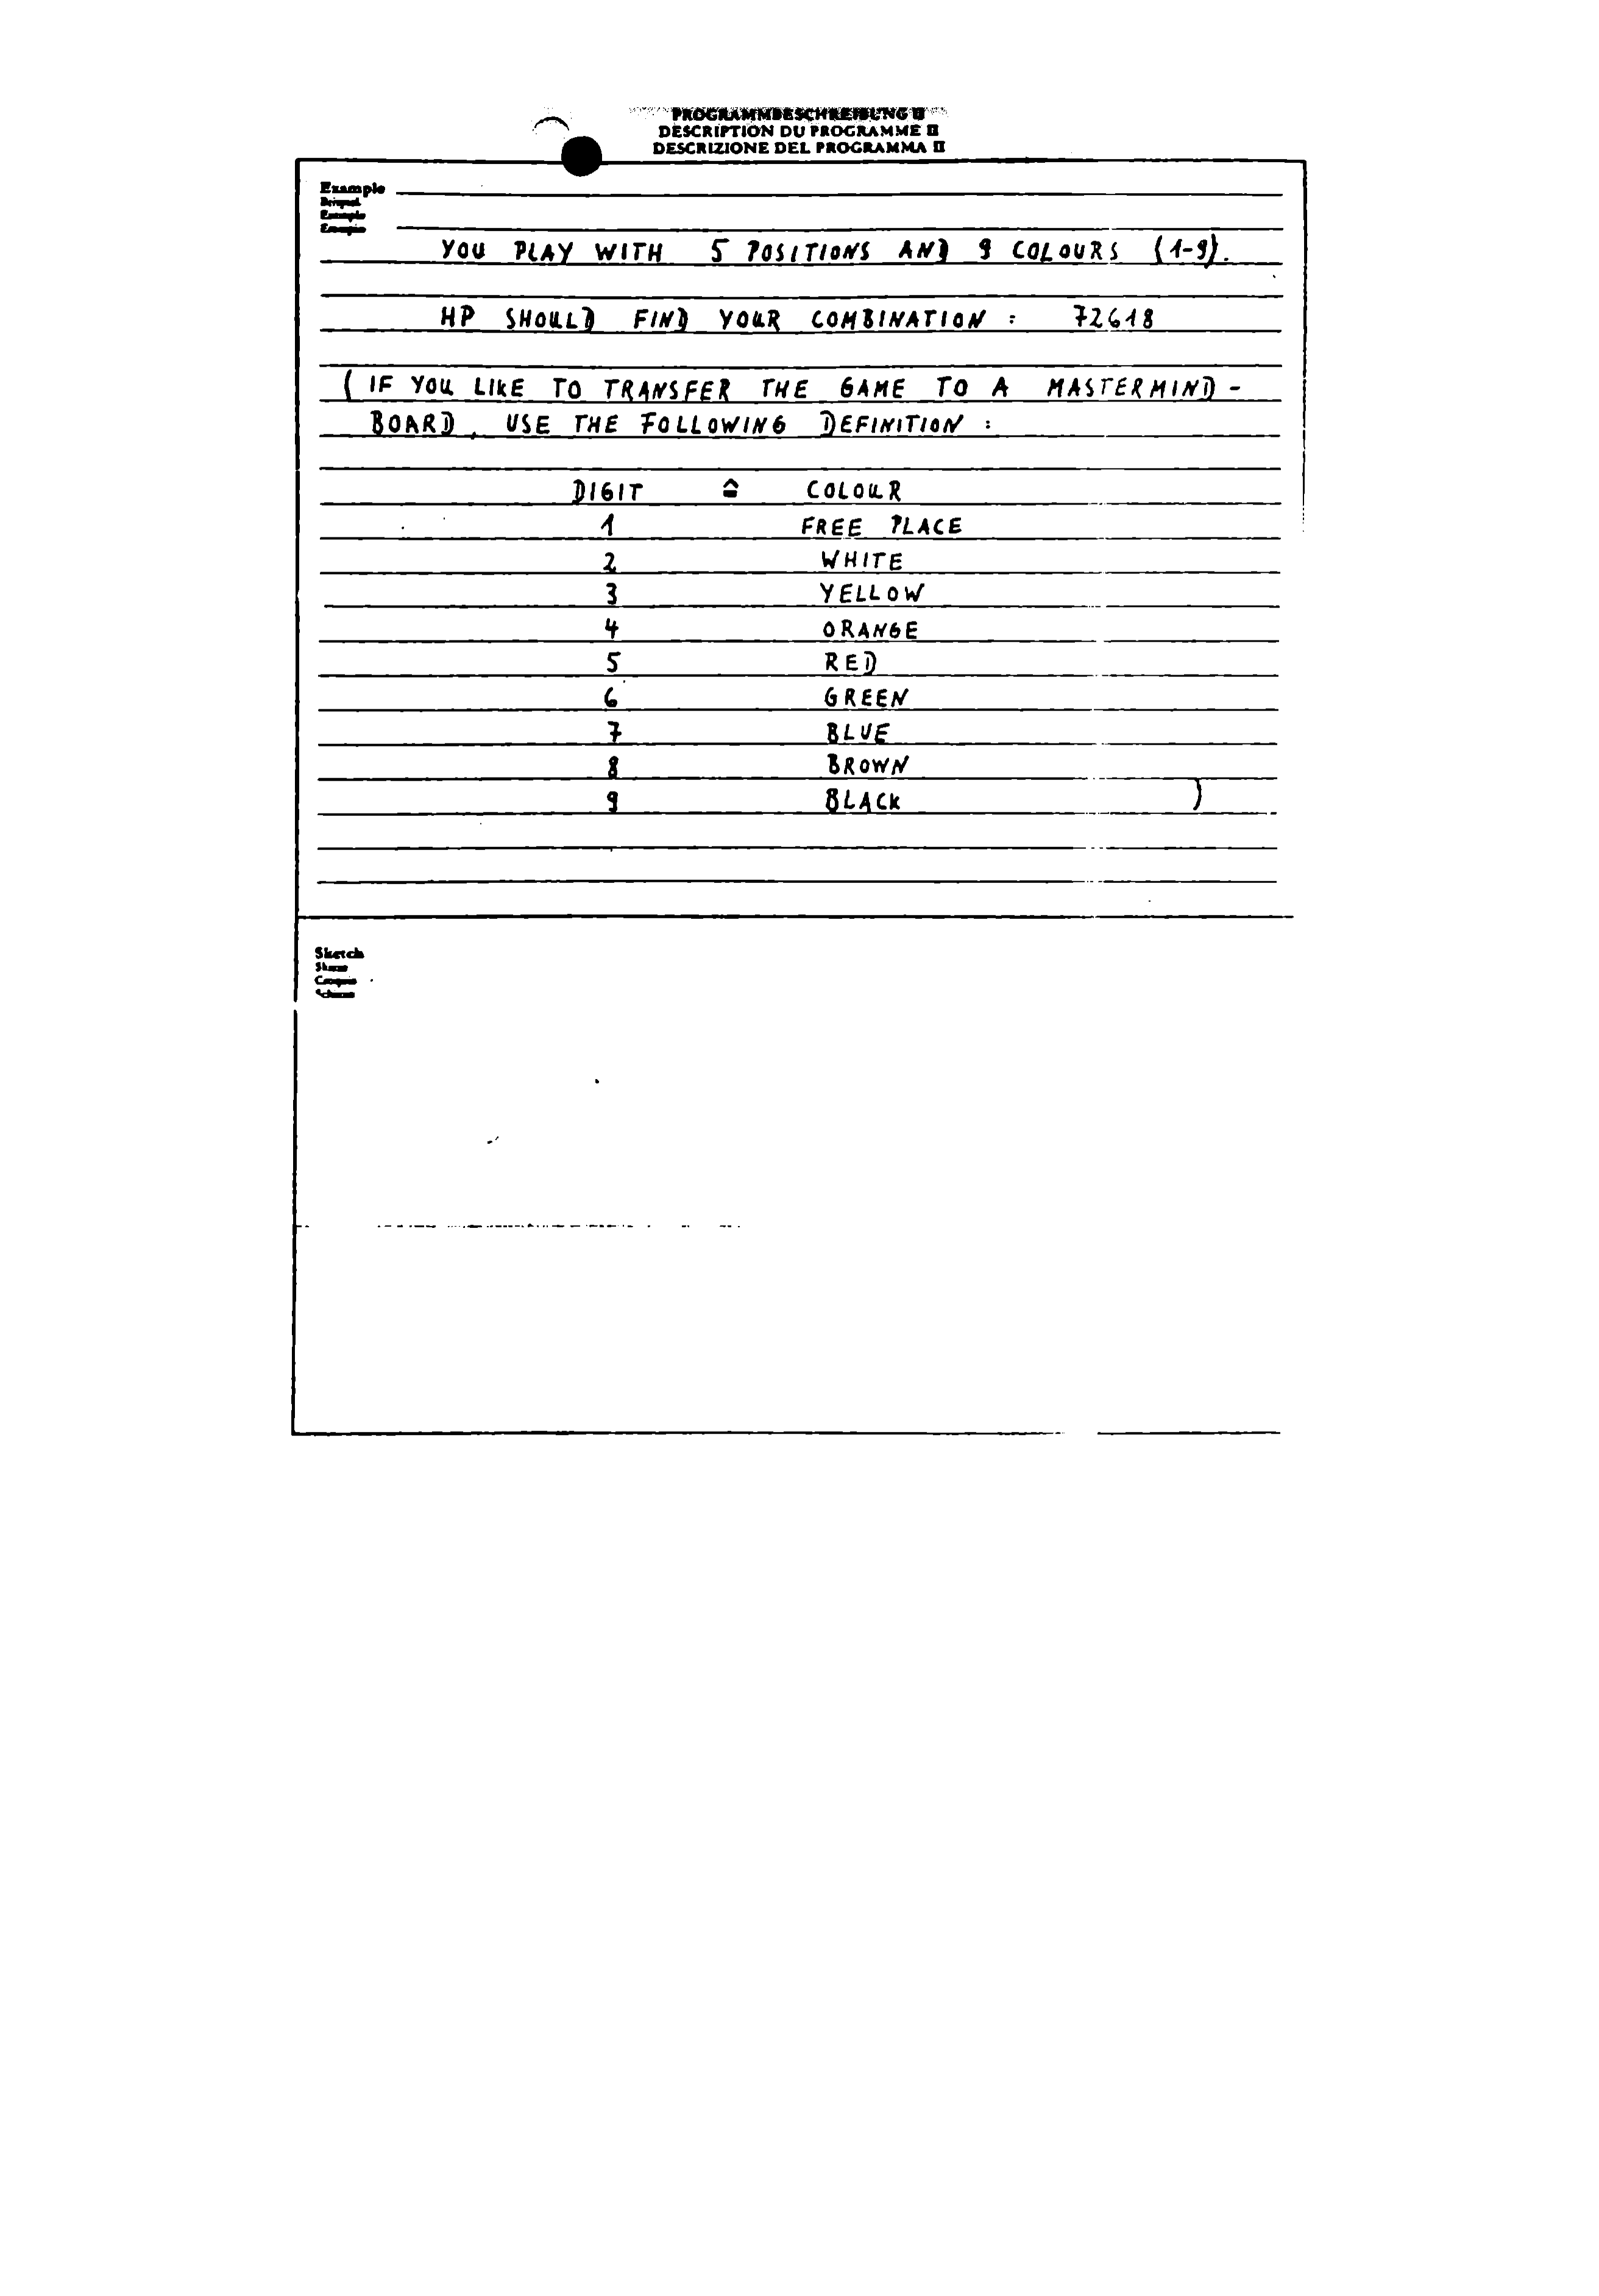 PROGRAMMBESCHREIBUNG II
DESCRIPTION DU PROGRAMME II
DESCRIZIONE DEL PROGRAMMA II
Example
Beispiel
Exemple
Esempio
YOU PLAY WITH 5 POSITIONS AND 9 COLOURS (1-9).
HP SHOULD FIND YOUR COMBINATION : 72618
( IF YOU LIKE TO TRANSFER THE GAME TO A MASTERMIND -
BOARD, USE THE FOLLOWING DEFINITION :
DIGIT ≙ COLOUR
1 FREE PLACE
2 WHITE
3 YELLOW
4 ORANGE
5 RED
6 GREEN
7 BLUE
8 BROWN
9 BLACK )
Sketch